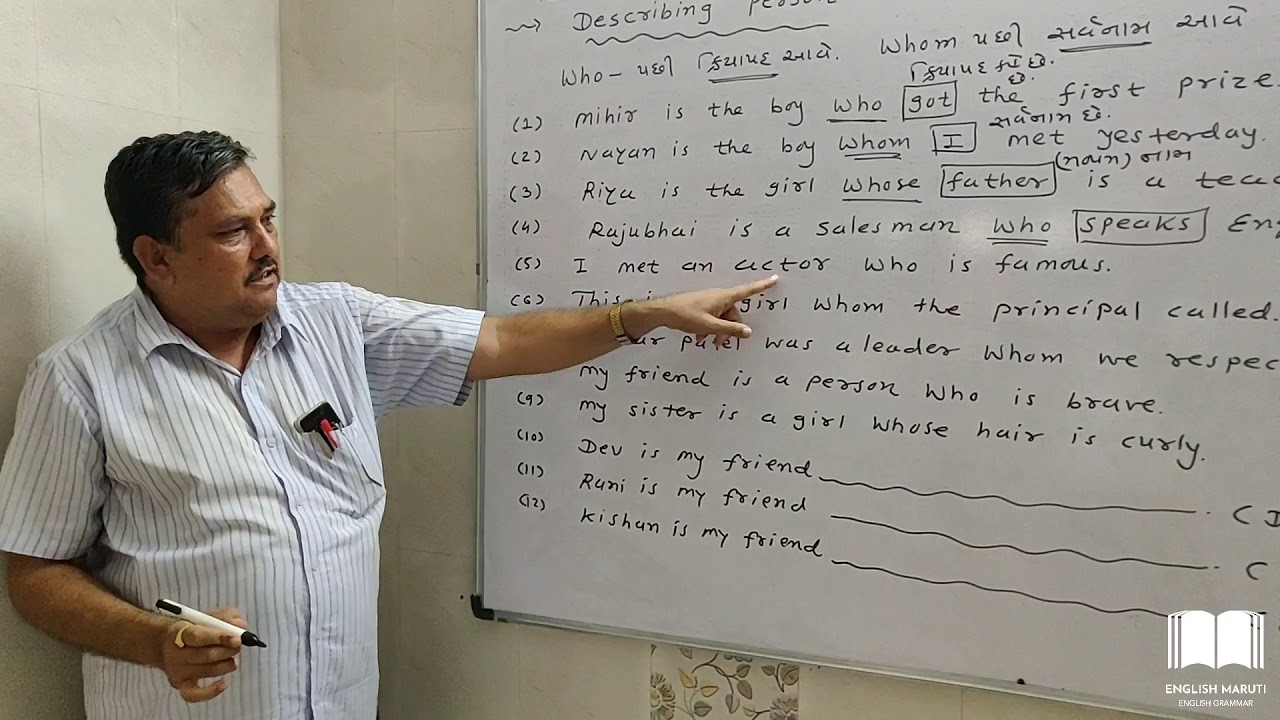 Describing person
Who - પછી ક્રિયાપદ આવે. Whom પછી સર્વનામ આવે
ક્રિયાપદ છે.
(1) Mihir is the boy who got the first prize.
સર્વનામ છે.
(2) Nayan is the boy whom I met yesterday.
નામ
(3) Riya is the girl whose father is a teac
(4) Rajubhai is a salesman who speaks Eng
(5) I met an actor who is famous.
(6) This is girl whom the principal called.
patel was a leader whom we respec
my friend is a person who is brave.
(9) my sister is a girl whose hair is curly.
(10) Dev is my friend
(11) Rani is my friend
(12) Kishan is my friend
ENGLISH MARUTI
ENGLISH GRAMMAR